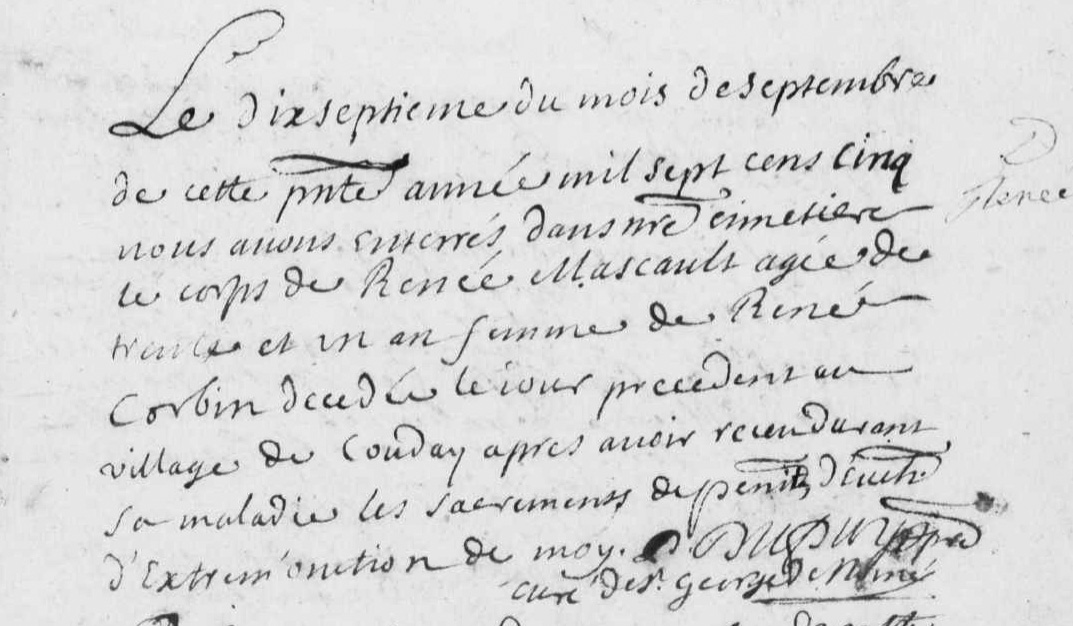 Le dixseptieme du mois de septembre
de cette pnte année mil sept cens cinq
nous avons enterrés dans nre cimetiere
le corps de Renée Mascault agée de
trente et un an femme de René
Corbin decedée le iour precedent au
village de Couday apres avoir receu durant
sa maladie les sacrements de penit, d'Euch
d'Extrem'onction de moy. DUPUY
curé de St. George
Renee